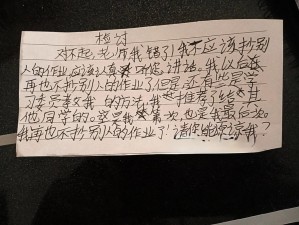 检讨
对不起，老师我错了！我不应该抄别
人的作业应该认真听您讲话。我以后
再也不抄别人的作业了但是还有些是学
委教我的方法，我推荐了给其
他同学的。这是我第一次，也是我最后一次。
我再也不抄别人的作业了！请你能原谅我？